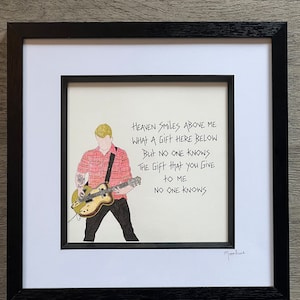 HEAVEN SMILES ABOVE ME
WHAT A GIFT HERE BELOW
BUT NO ONE KNOWS
THE GIFT THAT YOU GIVE
TO ME
NO ONE KNOWS